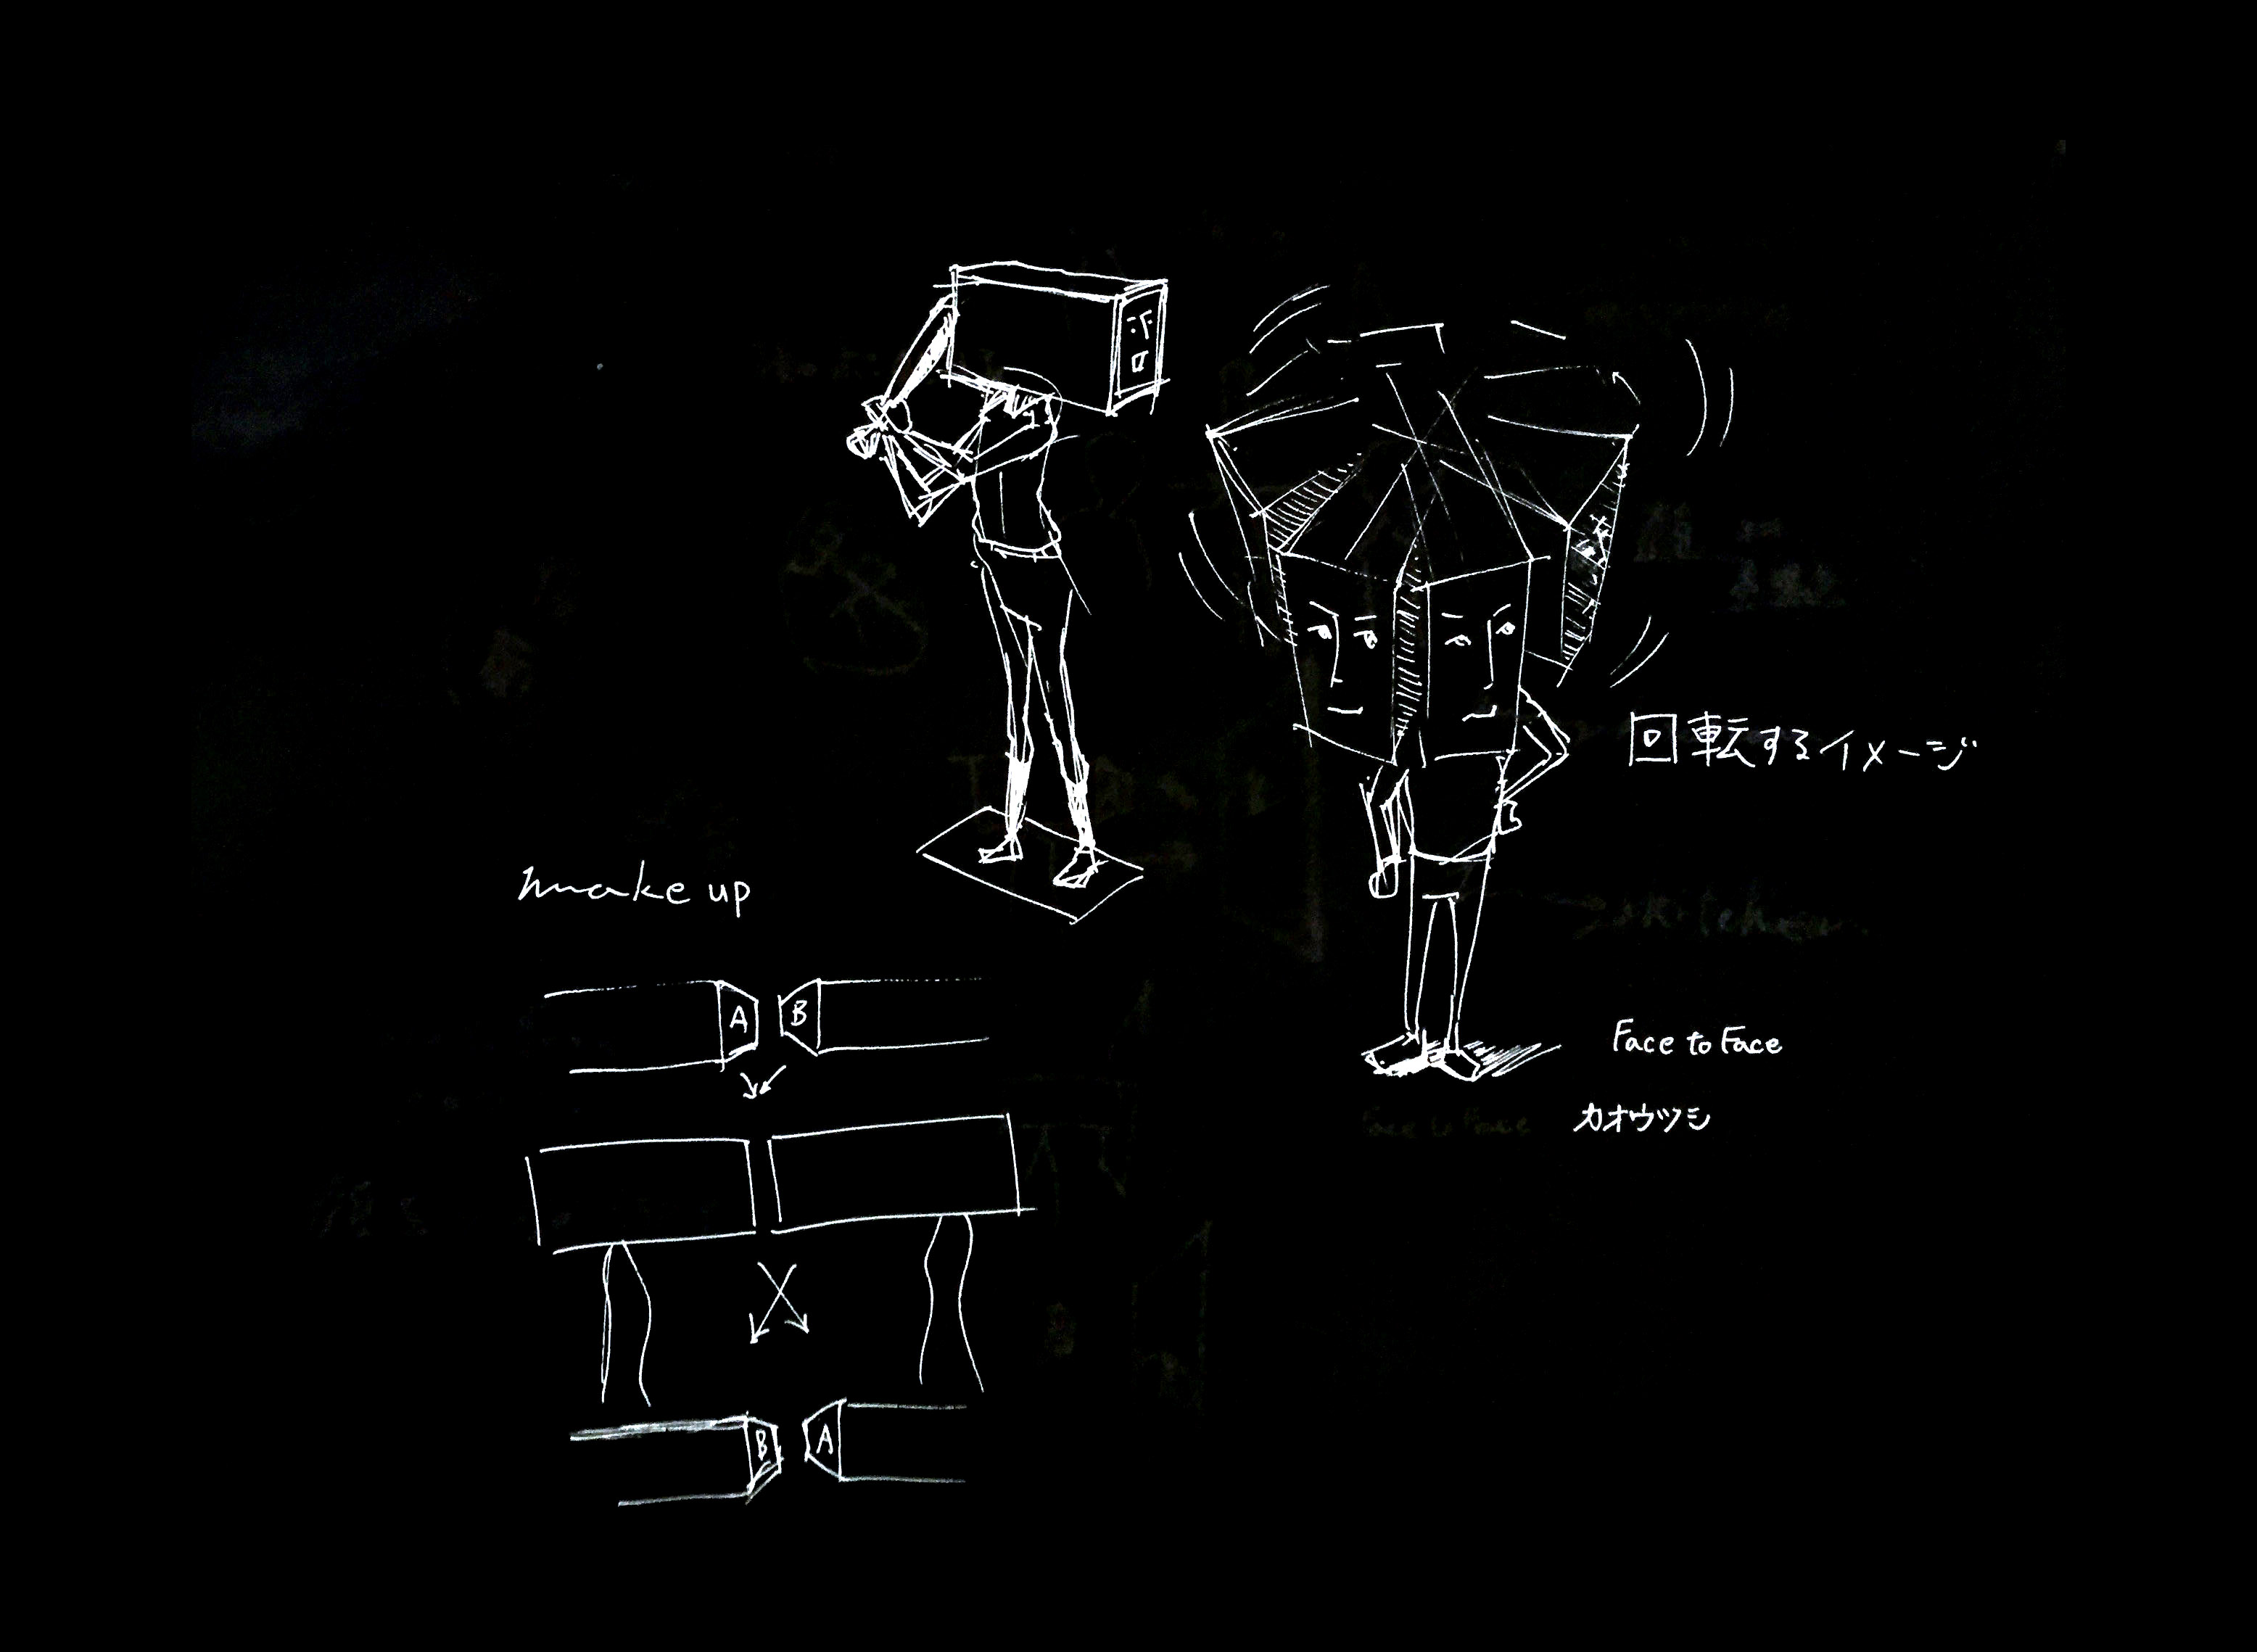 回転するイメージ
make up
A B
Face to Face
カオウツシ
B A
kitchen
Face to Face